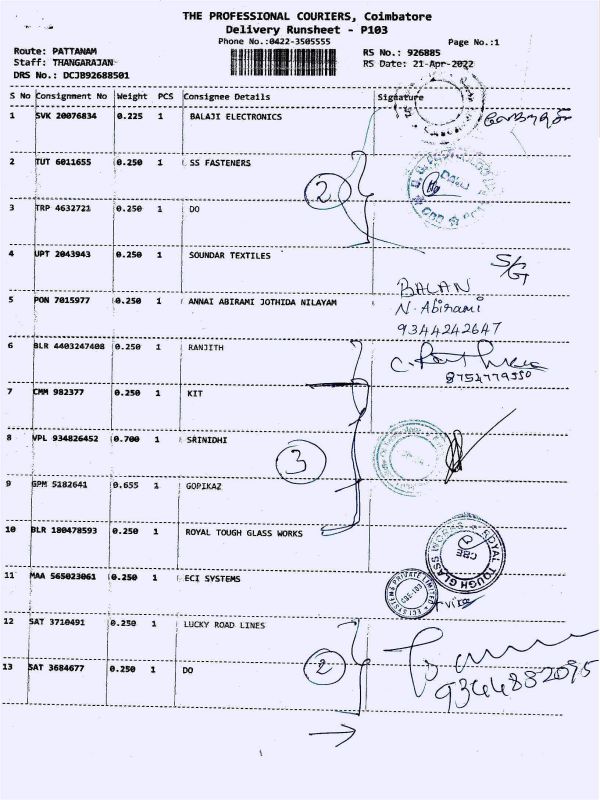 THE PROFESSIONAL COURIERS, Coimbatore
Delivery Runsheet - P103
Phone No.:0422-3505555
Page No.:1
Route: PATTANAM
RS No.: 926885
Staff: THANGARAJAN
RS Date: 21-Apr-2022
DRS No.: DCJB92688501
S No Consignment No Weight PCS Consignee Details Signature
1 SVK 20076834 0.225 1 BALAJI ELECTRONICS
2 TUT 6011655 0.250 1 SS FASTENERS
2
3 TRP 4632721 0.250 1 DO
4 UPT 2043943 0.250 1 SOUNDAR TEXTILES
S/GT
BALAN
5 PON 7015977 0.250 1 ANNAI ABIRAMI JOTHIDA NILAYAM
N. Abirami
9344242647
6 BLR 4403247408 0.250 1 RANJITH
8754779550
7 CMM 982377 0.250 1 KIT
8 VPL 934826452 0.700 1 SRINIDHI
3
9 GPM 5182641 0.655 1 GOPIKAZ
10 BLR 180478593 0.250 1 ROYAL TOUGH GLASS WORKS
ROYAL TOUGH GLASS WORKS
CBE
11 MAA 565023061 0.250 1 ECI SYSTEMS
ECI SYSTEMS PRIVATE LIMITED
12 SAT 3710491 0.250 1 LUCKY ROAD LINES
13 SAT 3684677 0.250 1 DO
2
9344882095